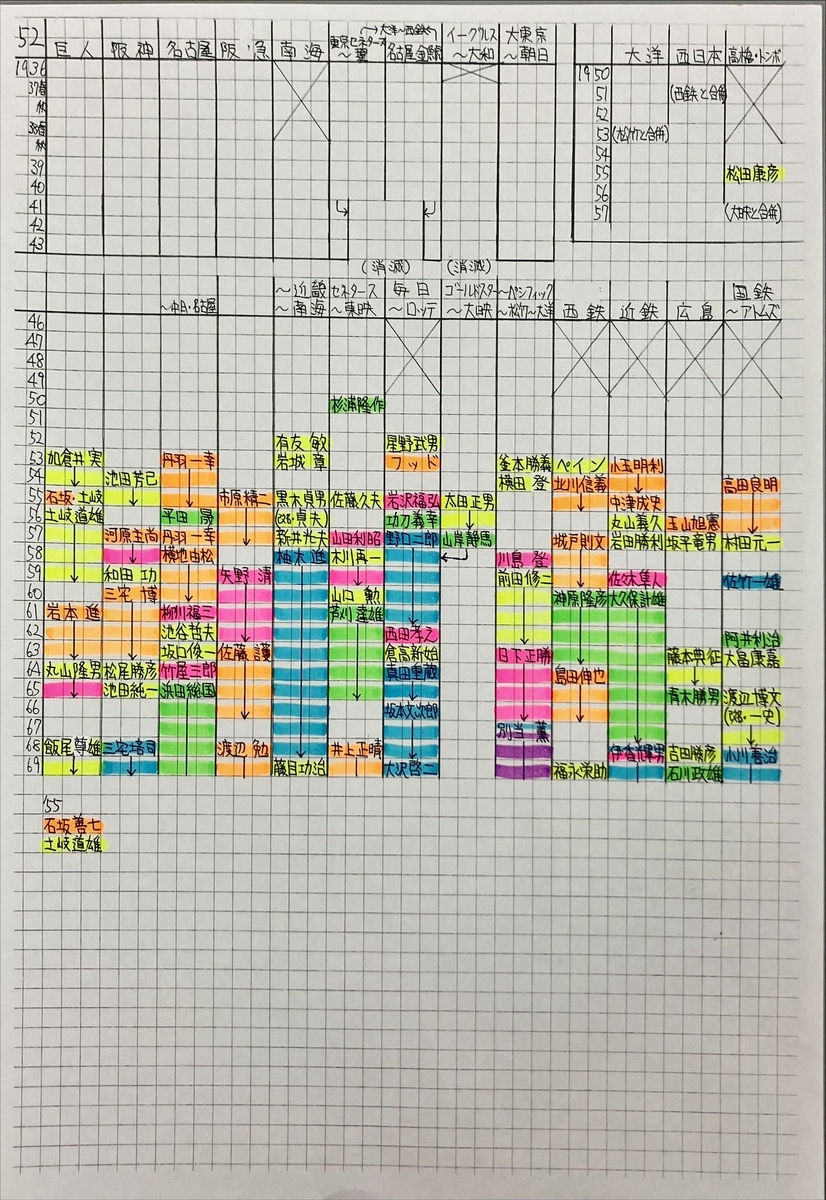 52 巨人 阪神 名古屋 阪急 南海 東京セネタース ～翼 大洋～西鉄 名古屋金鯱 イーグルス ～大和 大東京 ～朝日
大洋 西日本 高橋・トンボ
1936
37春
秋
38春
秋
39
40
41
42
43
1950
51 (西鉄と合併)
52
53 (松竹と合併)
54
55 松田康彦
56
57 (大映と合併)
(消滅) (消滅)
～近畿 セネタース 毎日 ゴールドスター ～パシフィック 国鉄
～中日・名古屋 ～南海 ～東映 ～ロッテ ～大映 ～松竹～大洋 西鉄 近鉄 広島 ～アトムズ
46
47
48
49
50 杉浦隆作
51
52 有友敏 星野武男
53 加倉井実 丹羽一幸 岩城章 フッド 釜本勝義 ペイン 小玉明利
54 池田芳己 横田登 北川信義 高田良明
55 石坂・土岐 市原績二 黒木貞男 佐藤久夫 岩沢福弘 太田正男 中津成史
56 土岐道雄 平田晟 (改・貞夫) 功刀義幸 丸山義久 玉山旭憲
57 河原圭尚 丹羽一幸 新井光夫 山田利昭 野口二郎 山岸静馬 城戸則文 岩田勝利 坂平竜男 村田元一
58 横地由松 柚木進 木川再一 川島登
59 和田功 矢野清 前田修二 佐々木隼人 佐竹一雄
60 三宅博 山口勲 神原隆彦 大久保計雄
61 岩本進 柳川福三 芦刈蓬雄
62 池谷哲夫 西田孝之 阿井利治
63 坂口俊一 佐藤護 倉高新始 日下正勝 藤本典征 大畠康嘉
64 丸山隆男 松尾勝彦 竹屋三郎 真田重蔵 島田伸也
65 池田純一 浜田総国 青木勝男 渡辺博文
66 坂本文次郎 (改・一史)
67 別当薫
68 飯尾尊雄 三宅培司 渡辺勉 井上正晴 伊香輝男 吉田勝彦 小川善治
69 藤目功治 大沢啓二 福永栄助 石川政雄
'55
石坂善七
土岐道雄